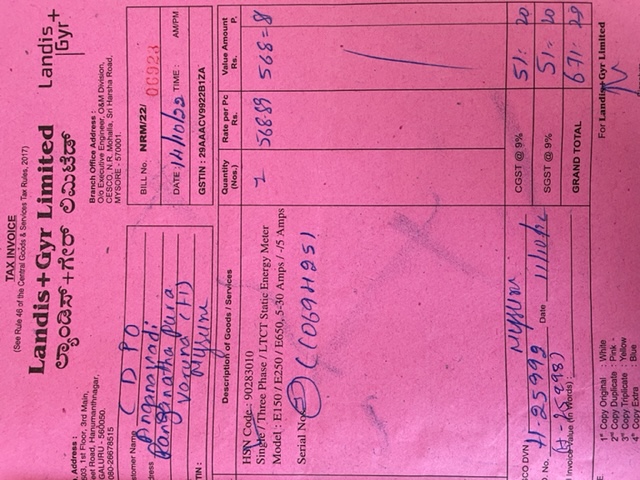 TAX INVOICE
(See Rule 46 of the Central Goods & Services Tax Rules, 2017)
Landis+Gyr Limited
ಲ್ಯಾಂಡಿಸ್+ಗೇರ್ ಲಿಮಿಟೆಡ್
Landis
Gyr+
Address :
1st Floor, 3rd Main,
Road, Hanumanthnagar,
GALURU - 560050.
080-26678515
Branch Office Address :
O/o Executive Engineer, O&M Division,
CESCO, N.R. Mohalla, Sri Harsha Road,
MYSORE - 570001.
Customer Name C D P O
Anganavadi
Ranganatha pura
Varuna (H)
Mysure
BILL No. NRM/22/ 06923
DATE : 14/10/22 TIME : AM/PM
GSTIN : 29AAACV9922B1ZA
Description of Goods / Services
Quantity (Nos.)
Rate per Pc Rs.
Value Amount Rs. P.
HSN Code : 90283010
Single / Three Phase / LTCT Static Energy Meter
Model : E150 / E250 / E650, 5-30 Amps / -/5 Amps
1 568.89 568=8
Serial No.
Mysure
CGST @ 9% 51: 20
H-25999 Date 11/10/22
SGST @ 9% 51: 20
Invoice Value (in Words) :
GRAND TOTAL 671: 29
For Landis+Gyr Limited
1st Copy Original : White
2nd Copy Duplicate : Pink
3rd Copy Triplicate : Yellow
4th Copy Extra : Blue